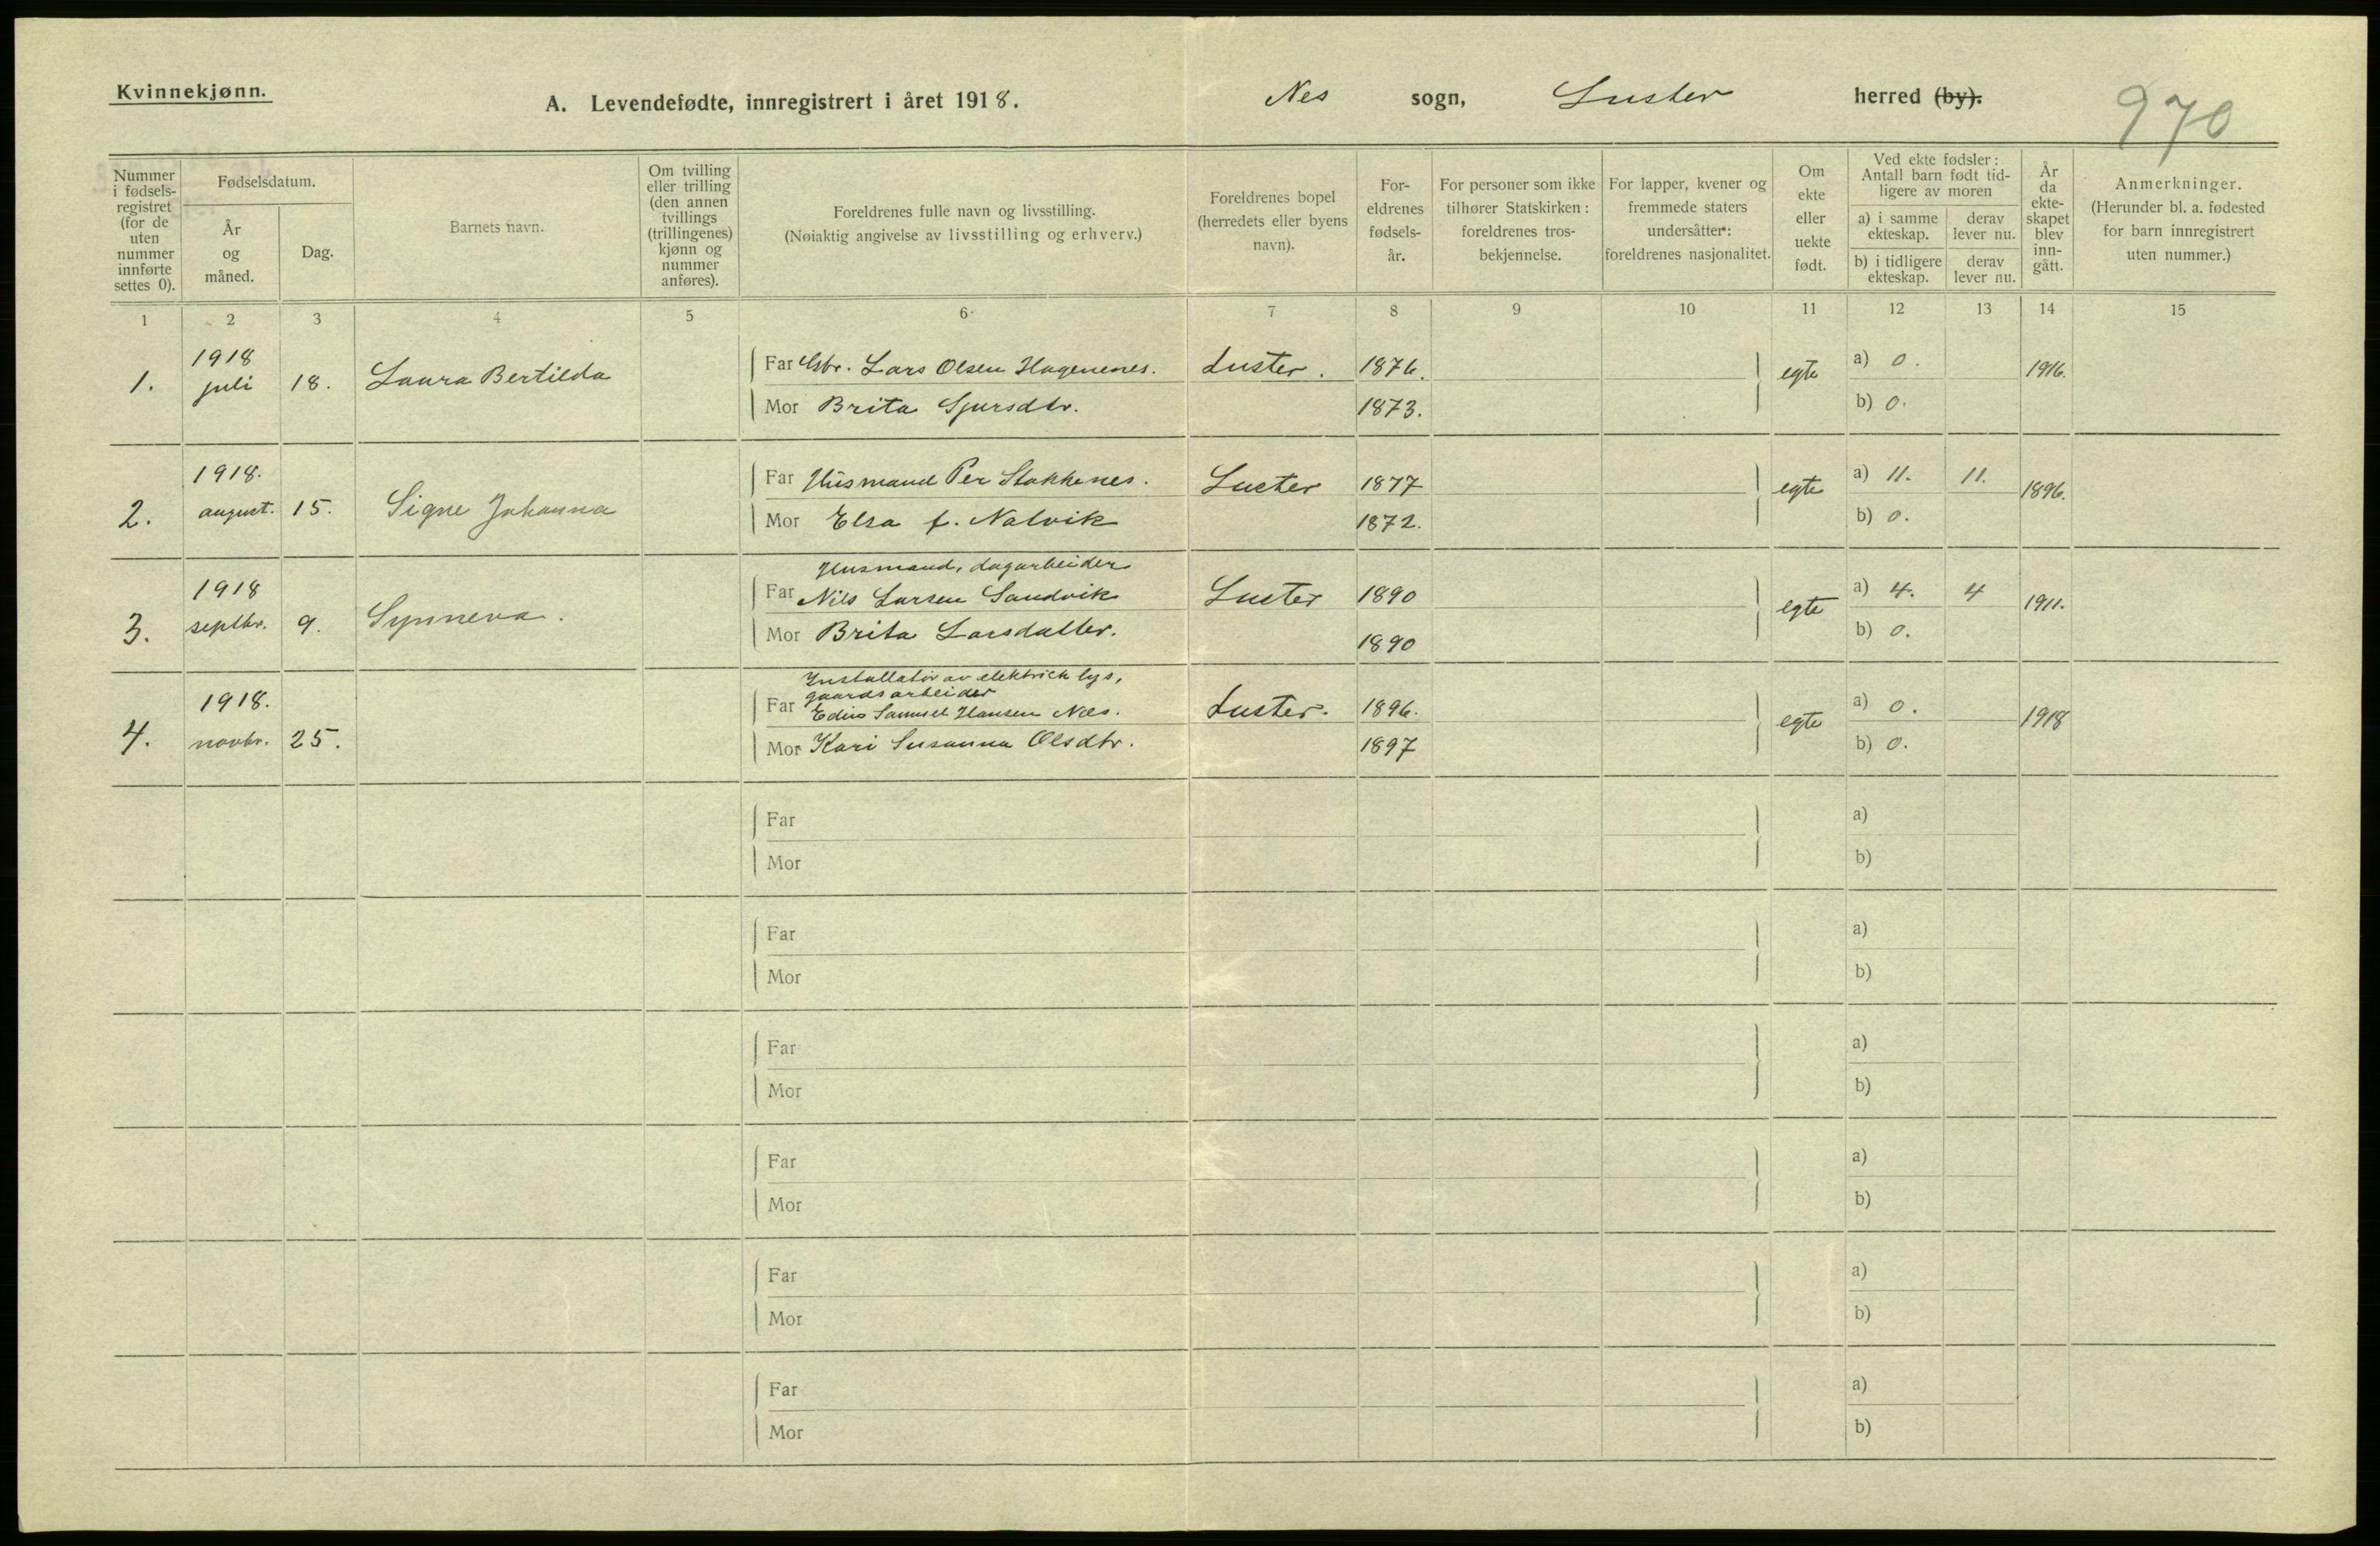 Kvinnekjønn.
A. Levendefødte, innregistrert i året 1918.
Nes sogn, Luster herred (by).
970
Nummer i fødselsregistret (for de uten nummer innførte settes 0).
Fødselsdatum.
År og måned.
Dag.
Barnets navn.
Om tvilling eller trilling (den annen tvillings (trillingenes) kjønn og nummer anføres).
Foreldrenes fulle navn og livsstilling.
(Nøiaktig angivelse av livsstilling og erhverv.)
Foreldrenes bopel (herredets eller byens navn).
Foreldrenes fødselsår.
For personer som ikke tilhører Statskirken: foreldrenes trosbekjennelse.
For lapper, kvener og fremmede staters undersåtter: foreldrenes nasjonalitet.
Om ekte eller uekte født.
Ved ekte fødsler: Antall barn født tidligere av moren
a) i samme ekteskap.
derav lever nu.
b) i tidligere ekteskap.
derav lever nu.
År da ekteskapet blev inngått.
Anmerkninger.
(Herunder bl. a. fødested for barn innregistrert uten nummer.)
1 2 3 4 5 6 7 8 9 10 11 12 13 14 15
1. 1918 juli 18. Laura Bertilda
Far Gbr. Lars Olsen Hagenenes. Luster. 1876. egte a) 0. 1916.
Mor Brita Sjursdtr. 1873. b) 0.
2. 1918. august. 15. Signe Johanna
Far Husmand Per Stokkenes. Luster 1877 egte a) 11. 11. 1896.
Mor Elsa f. Nalvik 1872. b) 0.
3. 1918 septbr. 9. Synneva.
Husmand, dagarbeider
Far Nils Larsen Sandvik Luster 1890 egte a) 4. 4 1911.
Mor Brita Larsdatter. 1890 b) 0.
4. 1918. novbr. 25.
Installatør av elektrick lys,
gaardsarbeider
Far Samuel Hansen Nes. Luster. 1896. egte a) 0. 1918
Mor Kari Susanna Olsdtr. 1897 b) 0.
Far a)
Mor b)
Far a)
Mor b)
Far a)
Mor b)
Far a)
Mor b)
Far a)
Mor b)
Far a)
Mor b)